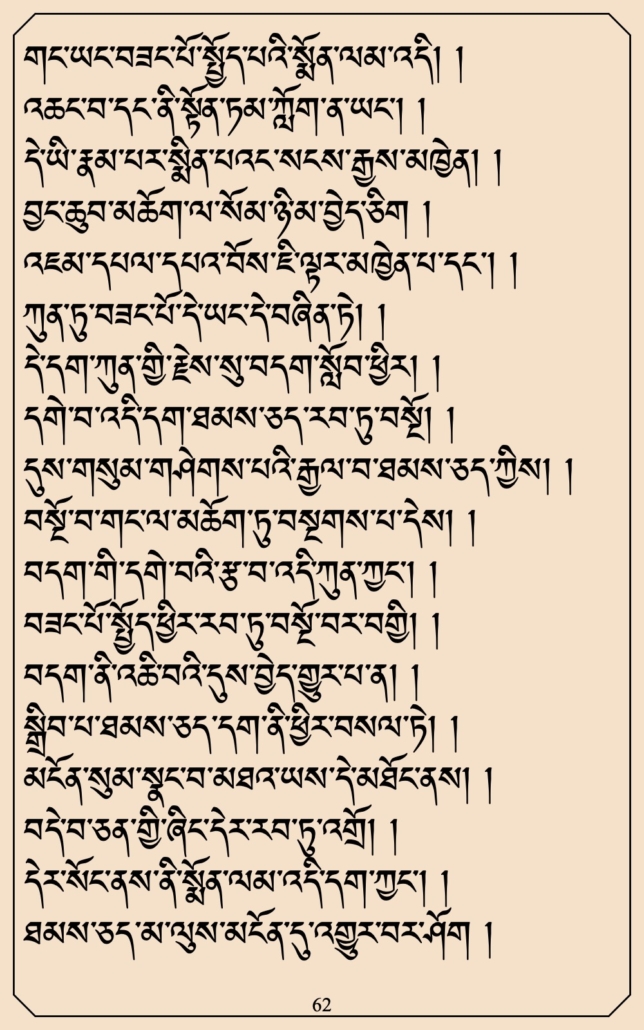 གང་ཡང་བཟང་པོ་སྤྱོད་པའི་སྨོན་ལམ་འདི། །
འཆང་བ་དང་ནི་སྟོན་ཏམ་ཀློག་ན་ཡང༌། །
དེ་ཡི་རྣམ་པར་སྨིན་པའང་སངས་རྒྱས་མཁྱེན། །
བྱང་ཆུབ་མཆོག་ལ་སོམ་ཉི་མ་བྱེད་ཅིག །
འཇམ་དཔལ་དཔའ་བོས་ཇི་ལྟར་མཁྱེན་པ་དང༌། །
ཀུན་ཏུ་བཟང་པོ་དེ་ཡང་དེ་བཞིན་ཏེ། །
དེ་དག་ཀུན་གྱི་རྗེས་སུ་བདག་སློབ་ཕྱིར། །
དགེ་བ་འདི་དག་ཐམས་ཅད་རབ་ཏུ་བསྔོ། །
དུས་གསུམ་གཤེགས་པའི་རྒྱལ་བ་ཐམས་ཅད་ཀྱིས། །
བསྔོ་བ་གང་ལ་མཆོག་ཏུ་བསྔགས་པ་དེས། །
བདག་གི་དགེ་བའི་རྩ་བ་འདི་ཀུན་ཀྱང༌། །
བཟང་པོ་སྤྱོད་ཕྱིར་རབ་ཏུ་བསྔོ་བར་བགྱི། །
བདག་ནི་འཆི་བའི་དུས་བྱེད་གྱུར་པ་ན། །
སྒྲིབ་པ་ཐམས་ཅད་དག་ནི་ཕྱིར་བསལ་ཏེ། །
མངོན་སུམ་སྣང་བ་མཐའ་ཡས་དེ་མཐོང་ནས། །
བདེ་བ་ཅན་གྱི་ཞིང་དེར་རབ་ཏུ་འགྲོ། །
དེར་སོང་ནས་ནི་སྨོན་ལམ་འདི་དག་ཀྱང༌། །
ཐམས་ཅད་མ་ལུས་མངོན་དུ་འགྱུར་བར་ཤོག །
62